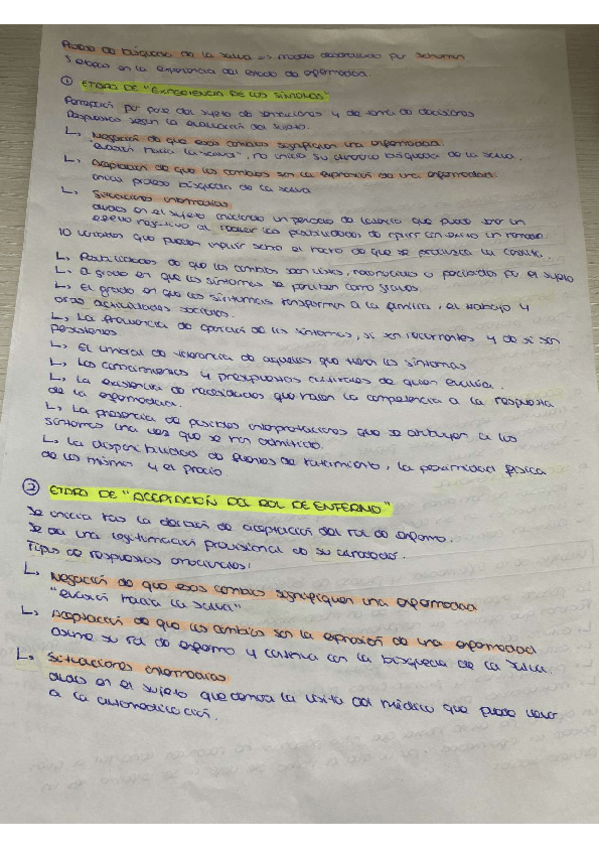 Proceso de búsqueda de la salud => modelo desarrollado por Suchman
5 etapas en la experiencia del estado de enfermedad.
① ETAPA DE "EXPERIENCIA DE LOS SÍNTOMAS"
Percepción por parte del sujeto de sensaciones y de toma de decisiones
Respuestas según la evaluación del sujeto.
↳ Negación de que esos cambios signifiquen una enfermedad.
"evasión hacia la salud", no inicia su búsqueda de la salud.
↳ Aceptación de que los cambios son la expresión de una enfermedad.
inicia proceso búsqueda de la salud
↳ Situaciones intermedias
dudas en el sujeto iniciando un periodo de que puede ser un
efecto negativo al reducir las posibilidades de un remedio.
10 variables que pueden influir sobre el hecho de que se produzca la consulta.
↳ Posibilidades de que los cambios sean vistos, reconocidos o percibidos por el sujeto
↳ El grado en que los síntomas se perciben como graves.
↳ El grado en que los síntomas transforman a la familia, el trabajo y
otras actividades sociales.
↳ La frecuencia de aparición de los síntomas, si son recurrentes y de si son
persistentes
↳ El umbral de tolerancia de aquellos que tienen los síntomas
↳ Los conocimientos y presupuestos culturales de quien evalúa.
↳ La existencia de necesidades que hacen la competencia a la respuesta
de la enfermedad.
↳ La presencia de posibles interpretaciones que se atribuyen a los
síntomas una vez que se han admitido.
↳ La disponibilidad de fuentes de tratamiento, la proximidad física
de los mismos y el precio.
② ETAPA DE "ACEPTACIÓN DEL ROL DE ENFERMO"
Se inicia tras la decisión de aceptación del rol de enfermo.
Se da una legitimación provisional de su
Tipos de respuestas emocionales:
↳ Negación de que esos cambios signifiquen una enfermedad
"evasión hacia la salud"
↳ Aceptación de que los cambios son la expresión de una enfermedad
asume su rol de enfermo y continua con la búsqueda de la salud.
↳ Situaciones intermedias
dudas en el sujeto que demora la visita del médico que puede llevar
a la automedicación.